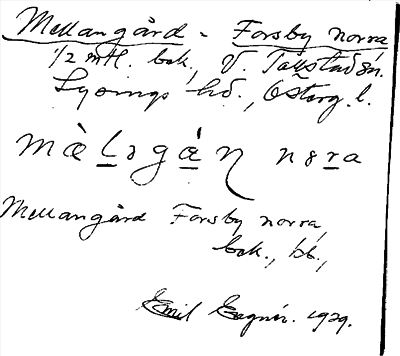 Mellangård - Forsby norra
1/2 mtl. bok., V. Tollstad sn.
Lysings hd., Österg. l.
norra
Mellangård Forsby norra,
bok., bb.,
Emil Eegnér. 1929.